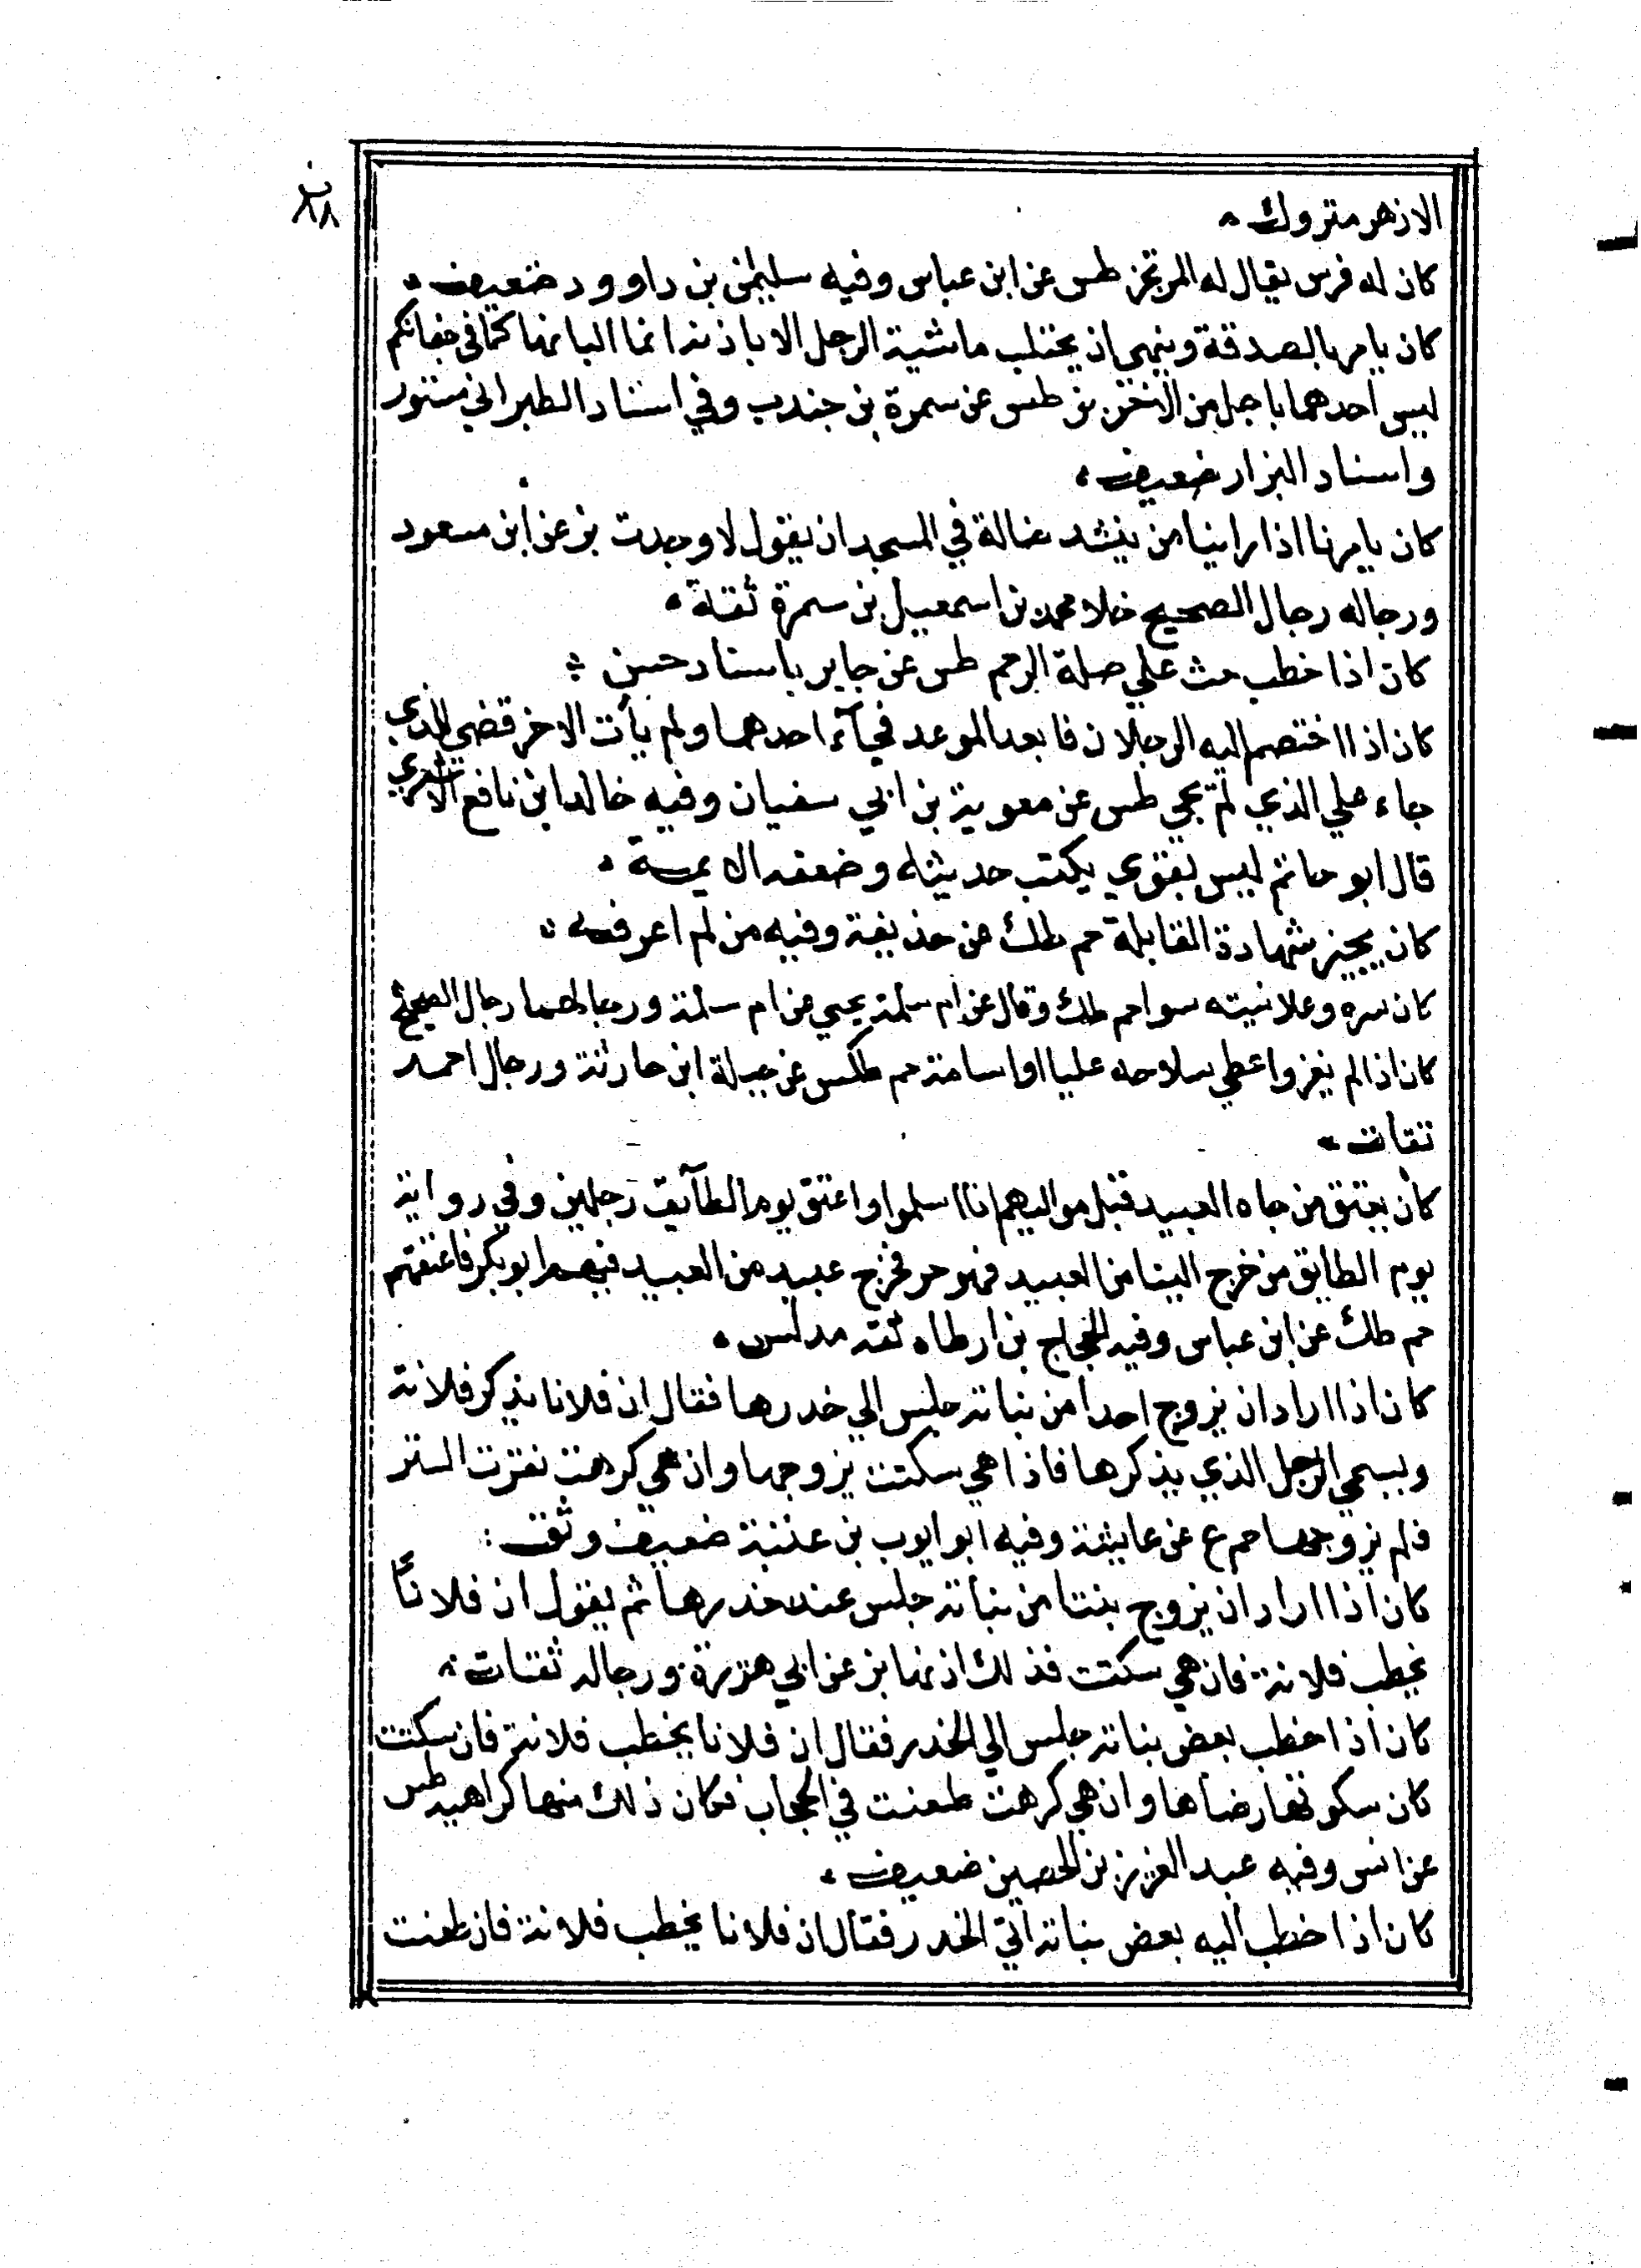 الازهر متروك
كان له فرس يقال له المرتجز طس عن ابن عباس وفيه سليمن بن داوود ضعيف
كان يامر بالصدقة وينهى ان يحتلب ماشية الرجل الا باذنه انما البانها كما في جفانكم
ليس احدهما باحل من الاخر بز طس عن سمرة بن جندب وفي اسناد الطبراني مستور
واسناد البزار ضعيف
كان يامرنا اذا راينا من ينشد ضالة في المسجد ان يقول لا وجدت بز عن ابن مسعود
ورجاله رجال الصحيح خلا محمد بن اسمعيل بن سمرة ثقة
كان اذا خطب حث علي صلة الرحم طس عن جابر باسناد حسن
كان اذا اختصم اليه الرجلان فا بعد الموعد فجآء احدهما ولم يأت الاخر قضي للذي
جاء علي الذي لم يجي طس عن معوية بن ابي سفيان وفيه خالد ابن نافع الاشعري
قال ابو حاتم ليس بقوي يكتب حديثه وضعفه الايمة
كان يجيز شهادة القابلة حم طك عن حذيفة وفيه من لم اعرفه
كان سره وعلانيته سوا حم طك وقال عن ام سلمة يحيي عن ام سلمة ورجالهما رجال الصحيح
كان اذا لم يغزو اعطي سلاحه عليا او اسامة حم طكس عن جبلة ابن حارثة ورجال احمد
ثقات
كان يعتق من جاه العبيد قبل مواليهم اذا اسلموا واعتق يوم الطآيف رجلين وفي رواية
يوم الطايف من خرج الينا من العبيد فهو حر فخرج عبيد من العبيد فيهم ابو بكر فاعتقهم
حم طك عن ابن عباس وفيه الحجاج بن ارطاه ثقه مدلس
كان اذا اراد ان يزوج احدا من بناته جلس الي خدرها فقال ان فلانا يذكر فلانة
ويسمي الرجل الذي يذكرها فاذا هي سكتت يزوجها وان هي كرهت نقرت الستر
فلم يزوجها حم ع عن عايشة وفيه ابو ايوب بن عتبة ضعيف وثق
كان اذا اراد ان يزوج بنتا من بناته جلس عند خدرها ثم يقول ان فلاناً
يخطب فلانة فان هي سكتت فذلك اذنها بز عن ابي هريرة ورجاله ثقات
كان اذا خطب بعض بناته جلس الي الخدر فقال ان فلانا يخطب فلانة فان سكتت
كان سكوتها رضاها وان هي كرهت طعنت في الحجاب فكان ذلك منها كراهية طس
عن انس وفيه عبد العزيز بن الحصين ضعيف
كان اذا خطب اليه بعض بناته اتي الخدر فقال ان فلانا يخطب فلانة فان طعنت